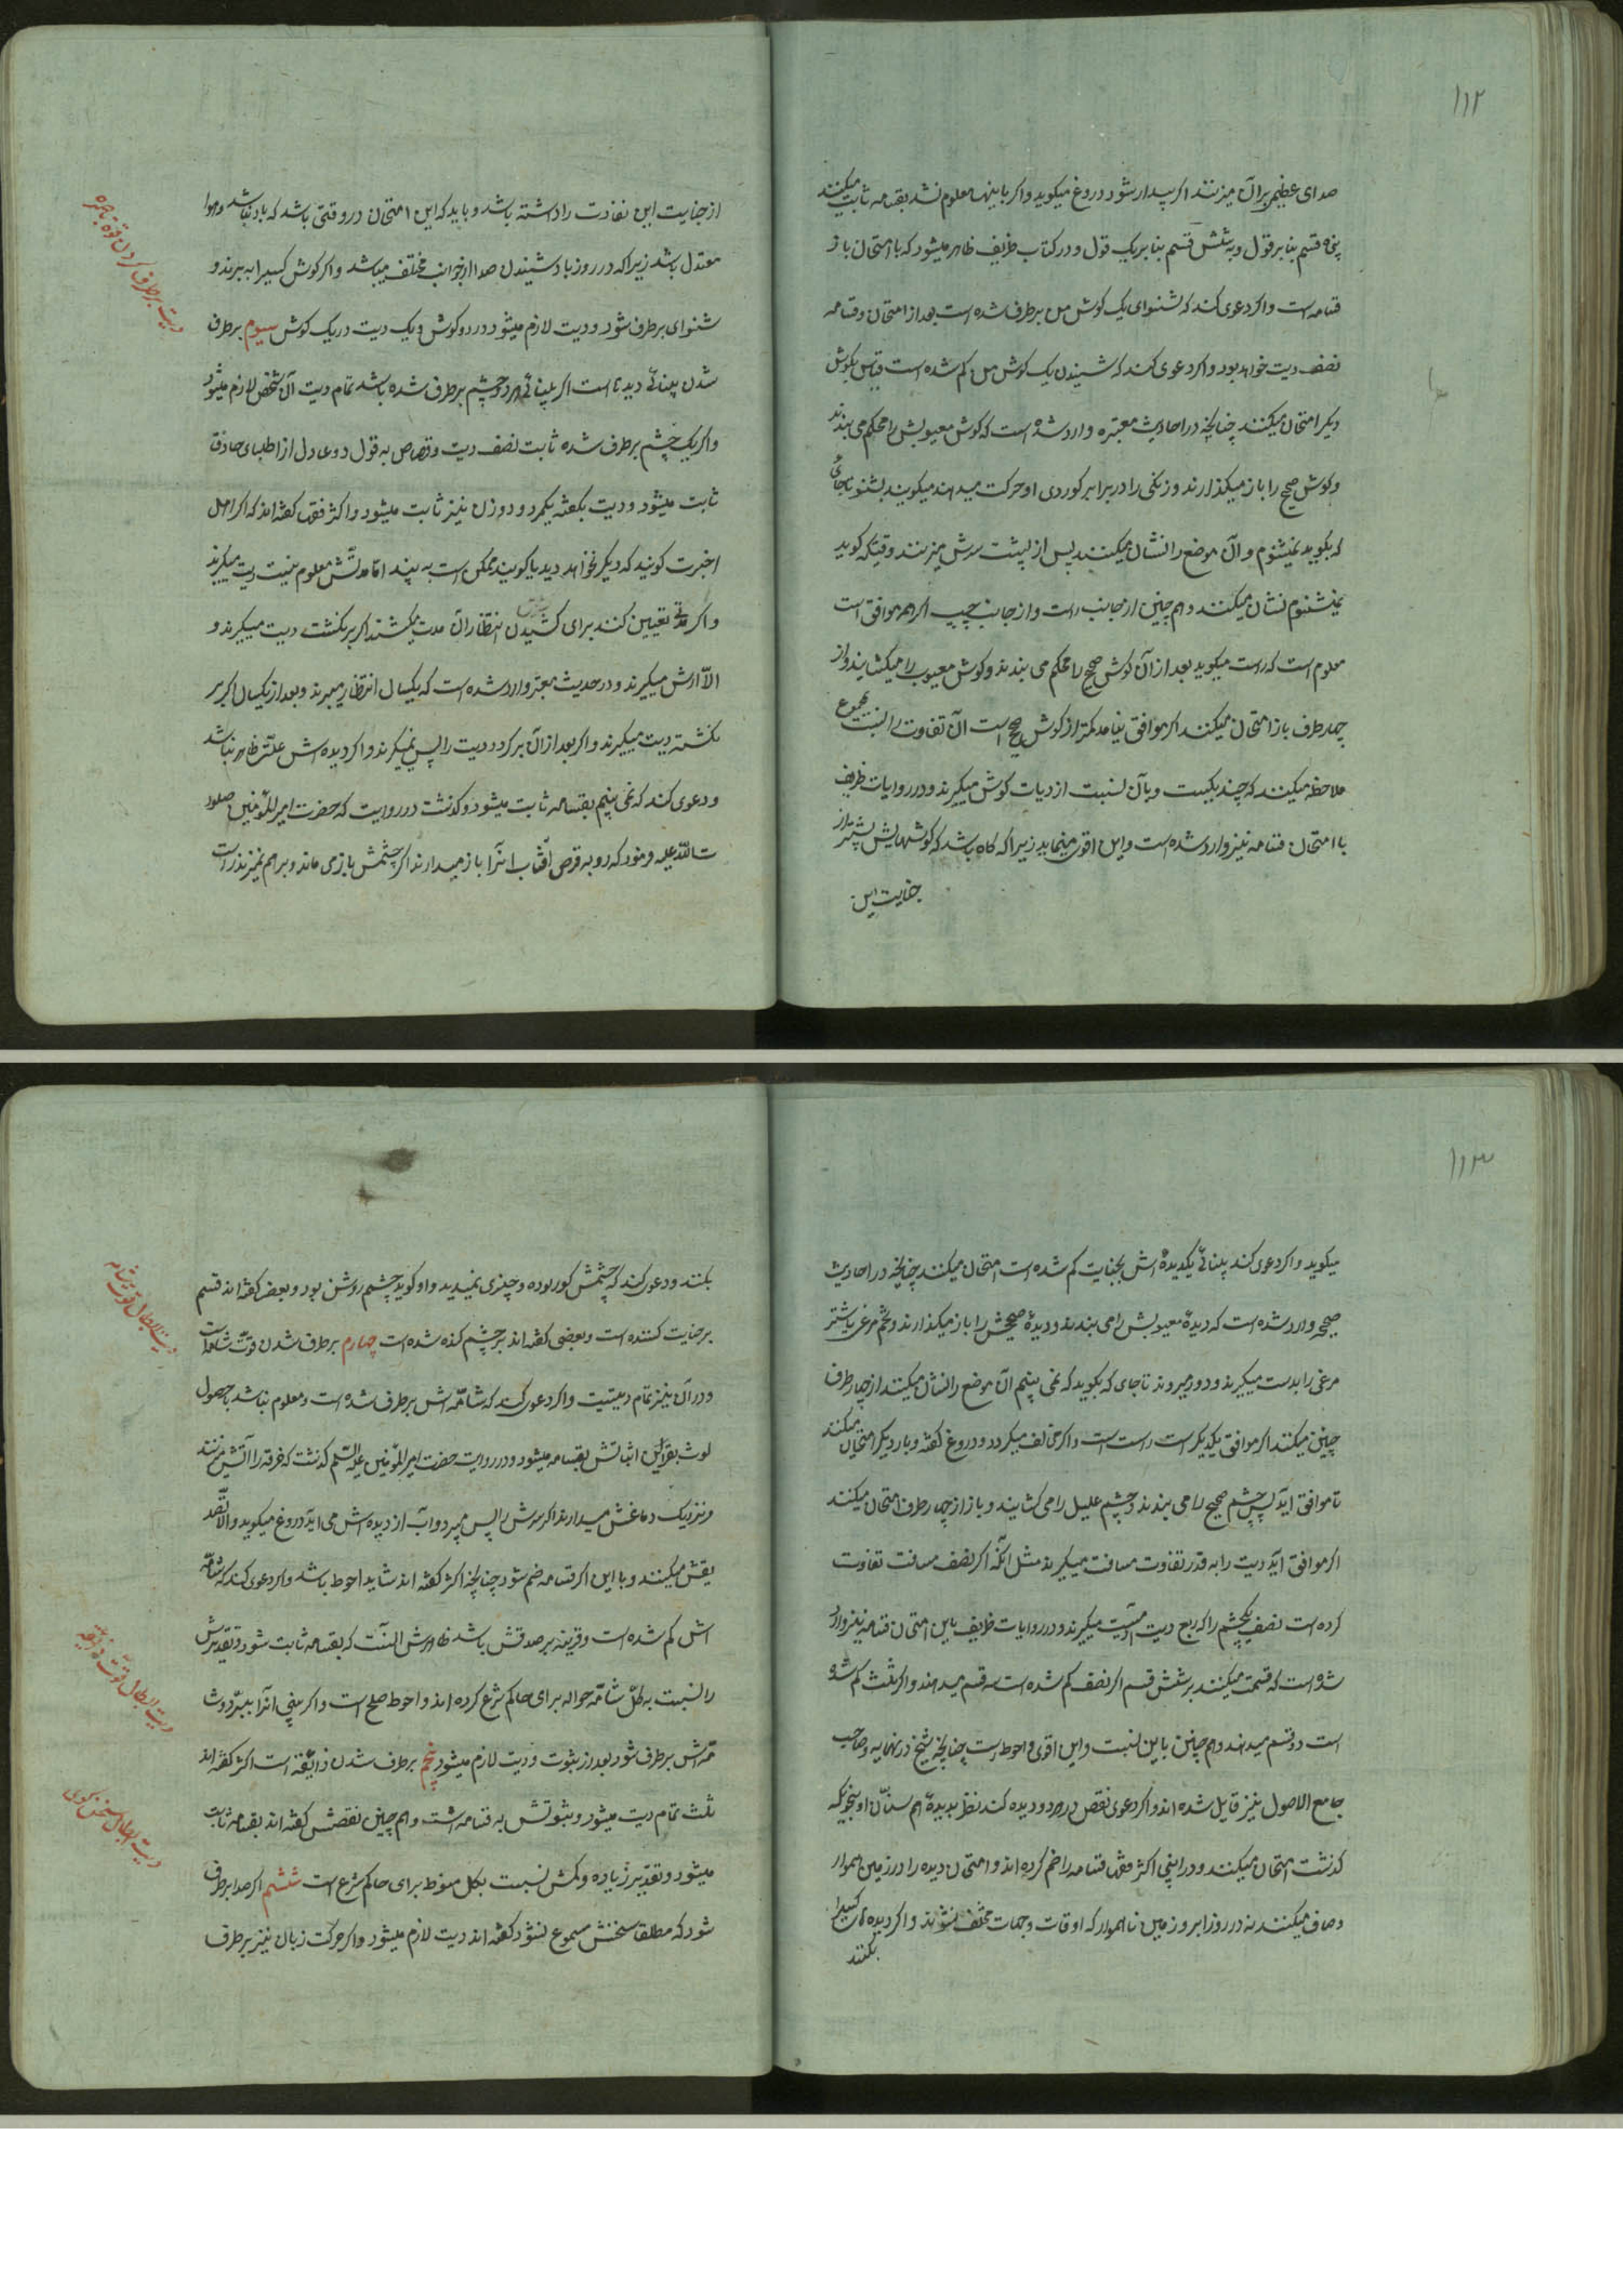 ۱۱۲
صدای عظیمی برآن میزنند اکر بیدار شود دروغ میکوید واکر باینها معلوم نشد بقسامه ثابت میکنند
پنجاه قسم بنا بر قول و به شش قسم بنا بریک قول و در کتاب ظریف ظاهر میشود که با امتحان باز
قسامه است واکر دعوی کند که شنوای یک کوش من برطرف شده است بعد از امتحان وقسامه
نصف دیت خواهد بود واکر دعوی کند که شنیدن یک کوش من کم شده است قیاس بکوش
دیکر امتحان میکنند چنانچه در احادیث معتبره وارد شده است که کوش معیوبش را محکم می بندند
وکوش صحیح را باز میکذارند وزنکی را در برابر کوردی او حرکت میدهند میکویند بشنو تا جای
که بکوید نمیشنوم وآن موضع را نشان میکنند پس از پشت سرش میزنند وقتیکه کوید
نمیشنوم نشان میکنند وهم چنین از جانب راست واز جانب چپ اکر همه موافق است
معلوم است که راست میکوید بعد از آن کوش صحیح را محکم می بندند وکوش معیوب را میکشایند واز
چهار طرف باز امتحان میکنند اکر موافق نیامد کمتر از کوش صحیح است آن تفاوت را نسبت بمجموع
ملاحظه میکنند که چند یکست وبآن نسبت از دیات کوش میکیرند ودر روایات ظریف
با امتحان قسامه نیز وارد شده است واین اقوی مینماید زیرا که کاه باشد که کوشهایش پیشتر از
جنایت این
از جنایت این تفاوت را داشته باشد وباید که این امتحان در وقتی باشد که باد نباشد وهوا
معتدل باشد زیرا که در روز باد شنیدن صدا از جوانب مختلف میباشد واکر کوش کسیرا به برند و
شنوای برطرف شود دو دیت لازم میشود در دو کوش ویک دیت در یک کوش سیوم برطرف
شدن بینائی دیدها است اکر بینائی هر دو چشم برطرف شده باشد تمام دیت آن شخص لازم میشود
واکر یک چشم برطرف شده ثابت نصف دیت وقصاص به قول دو عادل از اطبای حاذق
ثابت میشود ودیت بکفته یکمرد ودو زن نیز ثابت میشود واکثر فقها کفته اند که اکر اهل
خبرت کویند که دیکر نخواهد دید یا کویند ممکن است به بیند اما مدتش معلوم نیست دیت میکیرند
واکر مدتی تعیین کنند برای کشیدن انتظار آن مدت میکشند اکر برنکشت دیت میکیرند و
الّا ارش میکیرند ودر حدیث معتبر وارد شده است که یکسال انتظار میبرند وبعد از یکسال اکر بر
نکشته دیت میکیرند واکر بعد از آن برکردد دیت را پس نمیکیرند واکر دیده اش علتش ظاهر نباشد
ودعوی کند که نمی بینم بقسامه ثابت میشود وکذشت در روایت که حضرت امیرالمؤمنین صلوا
ت الله علیه فرمود که رو به قرص افتاب انرا باز میدارند اکر چشمش باز می ماند وبرهم نمیزند راست
دیت برطرف کردن قوة باصره
۱۱۳
میکوید واکر دعوی کند بینائی یکدیدهٔ اش بجنایت کم شده است امتحان میکنند چنانچه در احادیث
صحیح وارد شده است که دیدهٔ معیوبش را می بندند ودیدهٔ صحیحش را باز میکذارند وتخم مرغی یا شتر
مرغی را بدست میکیرند ودور میروند تا جای که بکوید که نمی بینم آن موضع را نشان میکنند از چهار طرف
چنین میکنند اکر موافق یکدیکر است راست است واکر مخالف میکردد ودروغ کفته وبار دیکر امتحان میکنند
تا موافق آید پس چشم صحیح را می بندند وچشم علیل را می کشایند وباز از چهار طرف امتحان میکنند
اکر موافق آید دیت را به قدر تفاوت مسافت میکیرند مثل آنکه اکر نصف مسافت تفاوت
کرده است نصف یکچشم را که ربع دیت است میکیرند ودر روایات ظریف باین امتحان قسامه نیز وارد
شده است که قسمت میکنند بر شش قسم اکر نصف کم شده است سه قسم میدهند واکر ثلث کم شده
است دو قسم میدهند وهم چنین باین نسبت واین اقوی واحوط است چنانچه شیخ در نهایه وصاحب
جامع الاصول نیز قایل شده اند واکر دعوی نقص در هر دو دیده کند نظر بدیدهٔ هم سنان او بنحویکه
کذشت امتحان میکنند ودر اینجا اکثر فقها قسامه را ضم کرده اند وامتحان دیده را در زمین هموار
وصاف میکنند نه در روز ابر وزمین ناهموار که اوقات وجهات مختلف نشوند واکر دیدهای کسیرا
بکنند
بکنند ودعوی کند که چشمش کور بوده وچیزی نمیدید واو کوید چشم روشن بود وبعضی کفته اند قسم
بر جنایت کننده است وبعضی کفته اند بر چشم کنده شده است چهارم برطرف شدن قوت شامه است
ودر آن نیز تمام دیتست واکر دعوی کند که شامه اش برطرف شده است ومعلوم نباشد با حصول
لوث بقراین اثباتش بقسامه میشود ودر روایت حضرت امیرالمؤمنین علیه السلم کذشت که خرقه را آتش میزنند
ونزدیک دماغش میدارند اکر سرش را پس میبرد وآب از دیده اش می اید دروغ میکوید والّا تصد
یقش میکنند وبا این اکر قسامه ضم شود چنانچه اکثر کفته اند شاید احوط باشد واکر دعوی کند که شامه
اش کم شده است وقرینه بر صدقش باشد ظاهرش آنست که بقسامه ثابت شود وتقدیرش
را نسبت به کل شامه حواله برای حاکم شرع کرده اند واحوط صلح است واکر بینی انرا ببرد وشا
مه اش برطرف شود بعد از ثبوت دو دیت لازم میشود پنجم برطرف شدن ذائقه است اکثر کفته اند
ثلث تمام دیت میشود وثبوتش به قسامه است وهم چنین نقصش کفته اند بقسامه ثابت
میشود وتقدیر زیاده وکمش نسبت بکل منوط برای حاکم شرع است ششم اکر صدا برطرف
شود که مطلقا سخنش مسموع نشود کفته اند دیت لازم میشود واکر حرکت زبان نیز برطرف
دیت ابطال قوت شامه
دیت ابطال قوت ذائقه
دیت ابطال سخن کوی